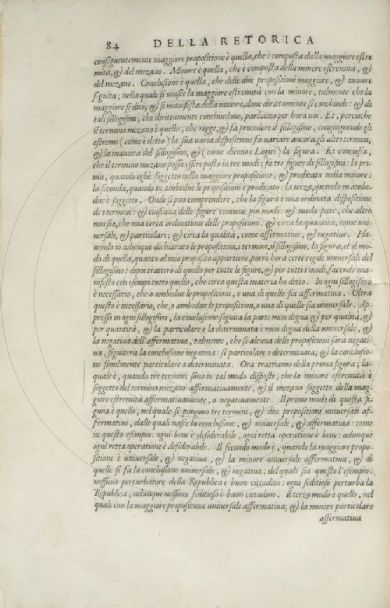 84 DELLA RETORICA
conseguentemente maggiore propositione è quella, che è composta dalla maggiore estre
mita, & del mezano. Minore è quella, che è composta della minore estremità, &
del mezano. Conclusione è quella, che dalle due propositioni maggiore, & minore
seguita; nella quale si unisce la maggiore estremità con la minore, talmente che la
maggiore si dice, & si manifesta della minore, dunque direttamente si conclude: & di
tali sillogismi, che direttamente conchiudono, parliamo per hora noi. Et, percioche
il termino mezano è quello, che regge, & fa procedere il sillogismo, congiungendo gli
estremi (come è detto) la sua varia dispositione fa variare ancora gli altri termini,
& la maniera del sillogismo, & (come dicono i Logici) la figura. Et concosia,
che il termino mezano possa essere posto in tre modi; fa tre figure di sillogismi: la pri-
ma, quando egli è soggetto nella maggiore propositione; & predicato nella minore:
la seconda, quando in ambedue le propositioni è predicato: la terza, quando in ambe-
due è soggetto. Onde si può comprendere, che la figura è una ordinata dispositione
de termini: & ciascuna delle figure contiene piu modi: & modo par, che altro
non sia, che una certa ordinatione delle propositioni: & circa la quantità, come uni-
versali, & particolari: & circa la qualità, come affirmative, & negative. Ha-
vendo io adunque dichiarato le propositioni, i termini, il sillogismo, la figura, et il mo-
do di quella, quanto al mio proposito appartiene, porrò hora certe regole universali del
sillogismo: & dipoi trattero di quello per tutte le figure, & per tutti i modi, facendo ma-
nifesto con esempi tutto quello, che circa questa materia ho detto. In ogni sillogismo
è necessario, che o ambedue le propositioni, o una di quelle sia affirmativa. Oltra
questo è necessario, che, o ambedue le propositioni, o una di quelle sia universale. Ap-
presso in ogni sillogismo, la conclusione seguita la parte meno degna & per qualità, &
per quantità, & la particolare, e la determinata è men degna della universale, &
la negativa dell'affermativa, talmente, che se alcuna delle propositioni sarà negati-
va, seguiterà la conclusione negativa: se particolare o determinata, & la conclusio-
ne similmente particolare o determinata. Ora trattiamo della prima figura; la-
quale è, quando tre termini sono in tal modo disposti, che la minore estremità è
soggetto del termino mezano affirmativamente, & il mezano soggetto della mag-
giore estremità affermativamente, o negativamente. Il primo modo di questa fi-
gura è quello, nel quale si pongono tre termini, & due propositioni universali af-
fermative, dalle quali nasce la conclusione, & universale, & affirmativa: come
in questo esempio. ogni bene è desiderabile, ogni retta operatione è bene: adunque
ogni retta operatione è desiderabile. Il secondo modo è, quando la maggiore propo-
sitione è universale, & negativa, & la minore universale affirmativa, & di
quelle si fa la conclusione universale, & negativa, del quale sia questo l'esempio.
nessuno perturbatore della Republica è buon cittadino: ogni seditioso perturba la
Republica, adunque nessuno seditioso è buon cittadino. il terzo modo è quello, nel
quale con la maggiore propositione universale affirmativa; & la minore particolare
affirmativa